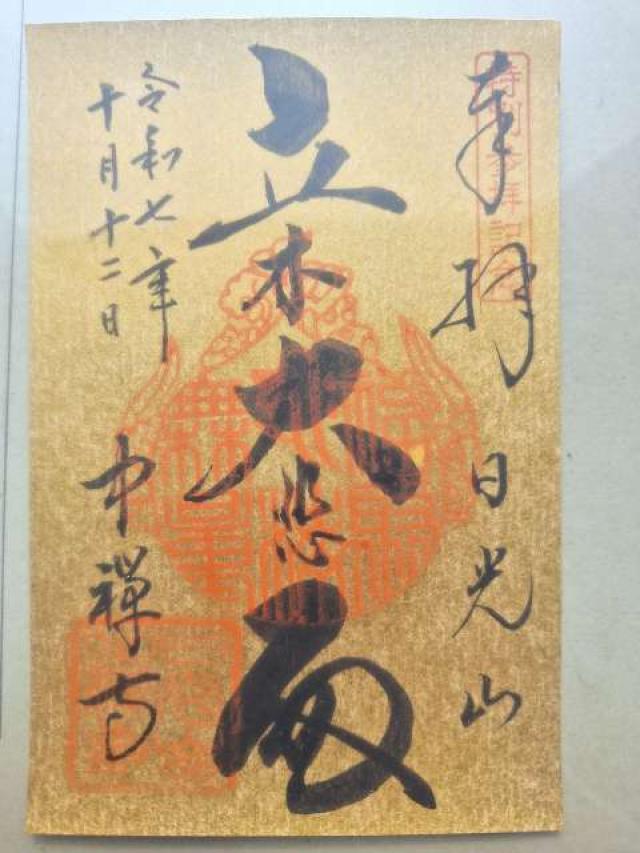 特別参拝記念
奉拝 日光山
立木大悲
令和七年
十月十二日
中禅寺